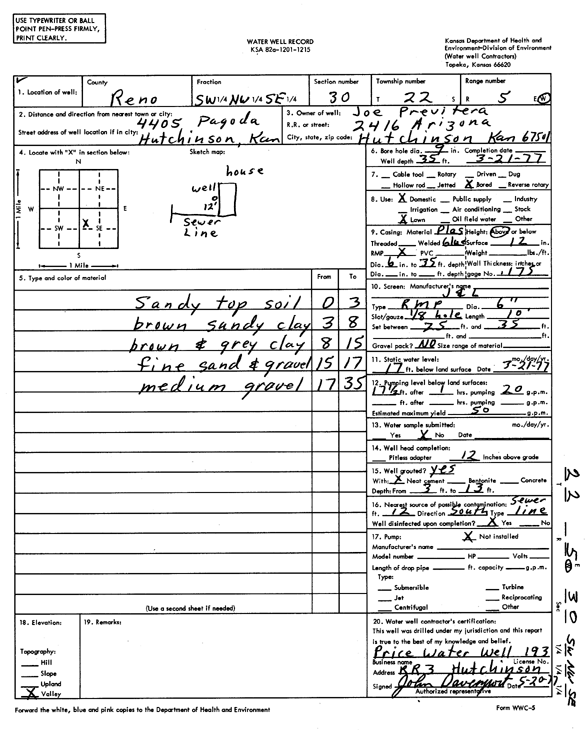 USE TYPEWRITER OR BALL
POINT PEN-PRESS FIRMLY,
PRINT CLEARLY.
WATER WELL RECORD
KSA 82a-1201-1215
Kansas Department of Health and
Environment-Division of Environment
(Water well Contractors)
Topeka, Kansas 66620
1. Location of well:
County
Reno
Fraction
SW 1/4 NW 1/4 SE 1/4
Section number
30
Township number
T 22 S
Range number
R 5 E(W)
2. Distance and direction from nearest town or city:
4405 Pagoda
Street address of well location if in city:
Hutchinson, Kan
3. Owner of well: Joe Previtera
R.R. or street: 2416 Arizona
City, state, zip code: Hutchinson Kan 67501
4. Locate with "X" in section below:
N
NW NE
W E
X
SW SE
S
1 Mile
1 Mile
Sketch map:
house
well
0
12'
Sewer
Line
5. Type and color of material
From To
Sandy top soil 0 3
brown sandy clay 3 8
brown & grey clay 8 15
fine sand & gravel 15 17
medium gravel 17 35
(Use a second sheet if needed)
6. Bore hole dia. 9 in. Completion date
Well depth 35 ft. 3-21-77
7. Cable tool Rotary Driven Dug
Hollow rod Jetted X Bored Reverse rotary
8. Use: X Domestic Public supply Industry
Irrigation Air conditioning Stock
X Lawn Oil field water Other
9. Casing: Material Plas Height: Above or below
Threaded Welded Glue Surface 12 in.
RMP X PVC Weight lbs./ft.
Dia. 6 in. to 35 ft. depth Wall Thickness: inches or
Dia. in. to ft. depth gage No. .175
10. Screen: Manufacturer's name
J & L
Type RMP Dia. 6"
Slot/gauze 1/8 hole Length 10'
Set between 25 ft. and 35 ft.
ft. and ft.
Gravel pack? NO Size range of material
11. Static water level: mo./day/yr.
17 ft. below land surface Date 3-21-77
12. Pumping level below land surfaces:
17 1/2 ft. after 1 hrs. pumping 20 g.p.m.
ft. after hrs. pumping g.p.m.
Estimated maximum yield 50 g.p.m.
13. Water sample submitted: mo./day/yr.
Yes X No Date
14. Well head completion:
Pitless adapter 12 Inches above grade
15. Well grouted? yes
With: X Neat cement Bentonite Concrete
Depth: From 3 ft. to 13 ft.
16. Nearest source of possible contamination: Sewer
ft. 12 Direction South Type line
Well disinfected upon completion? X Yes No
17. Pump: X Not installed
Manufacturer's name
Model number HP Volts
Length of drop pipe ft. capacity g.p.m.
Type:
Submersible Turbine
Jet Reciprocating
Centrifugal Other
18. Elevation:
19. Remarks:
Topography:
Hill
Slope
Upland
X Valley
20. Water well contractor's certification:
This well was drilled under my jurisdiction and this report
is true to the best of my knowledge and belief.
Price Water Well 193
Business name License No.
Address RR3 Hutchinson
Signed John Davenport Date 5-20-77
Authorized representative
Forward the white, blue and pink copies to the Department of Health and Environment
Form WWC-5
T 22 R 5 E W Sec 30 SW NW SE
1/4 1/4 1/4